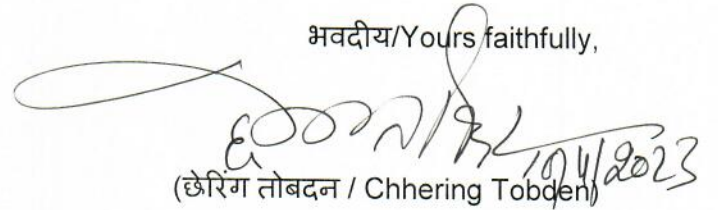 भवदीय/Yours faithfully,
(छेरिंग तोबदन / Chhering Tobden)